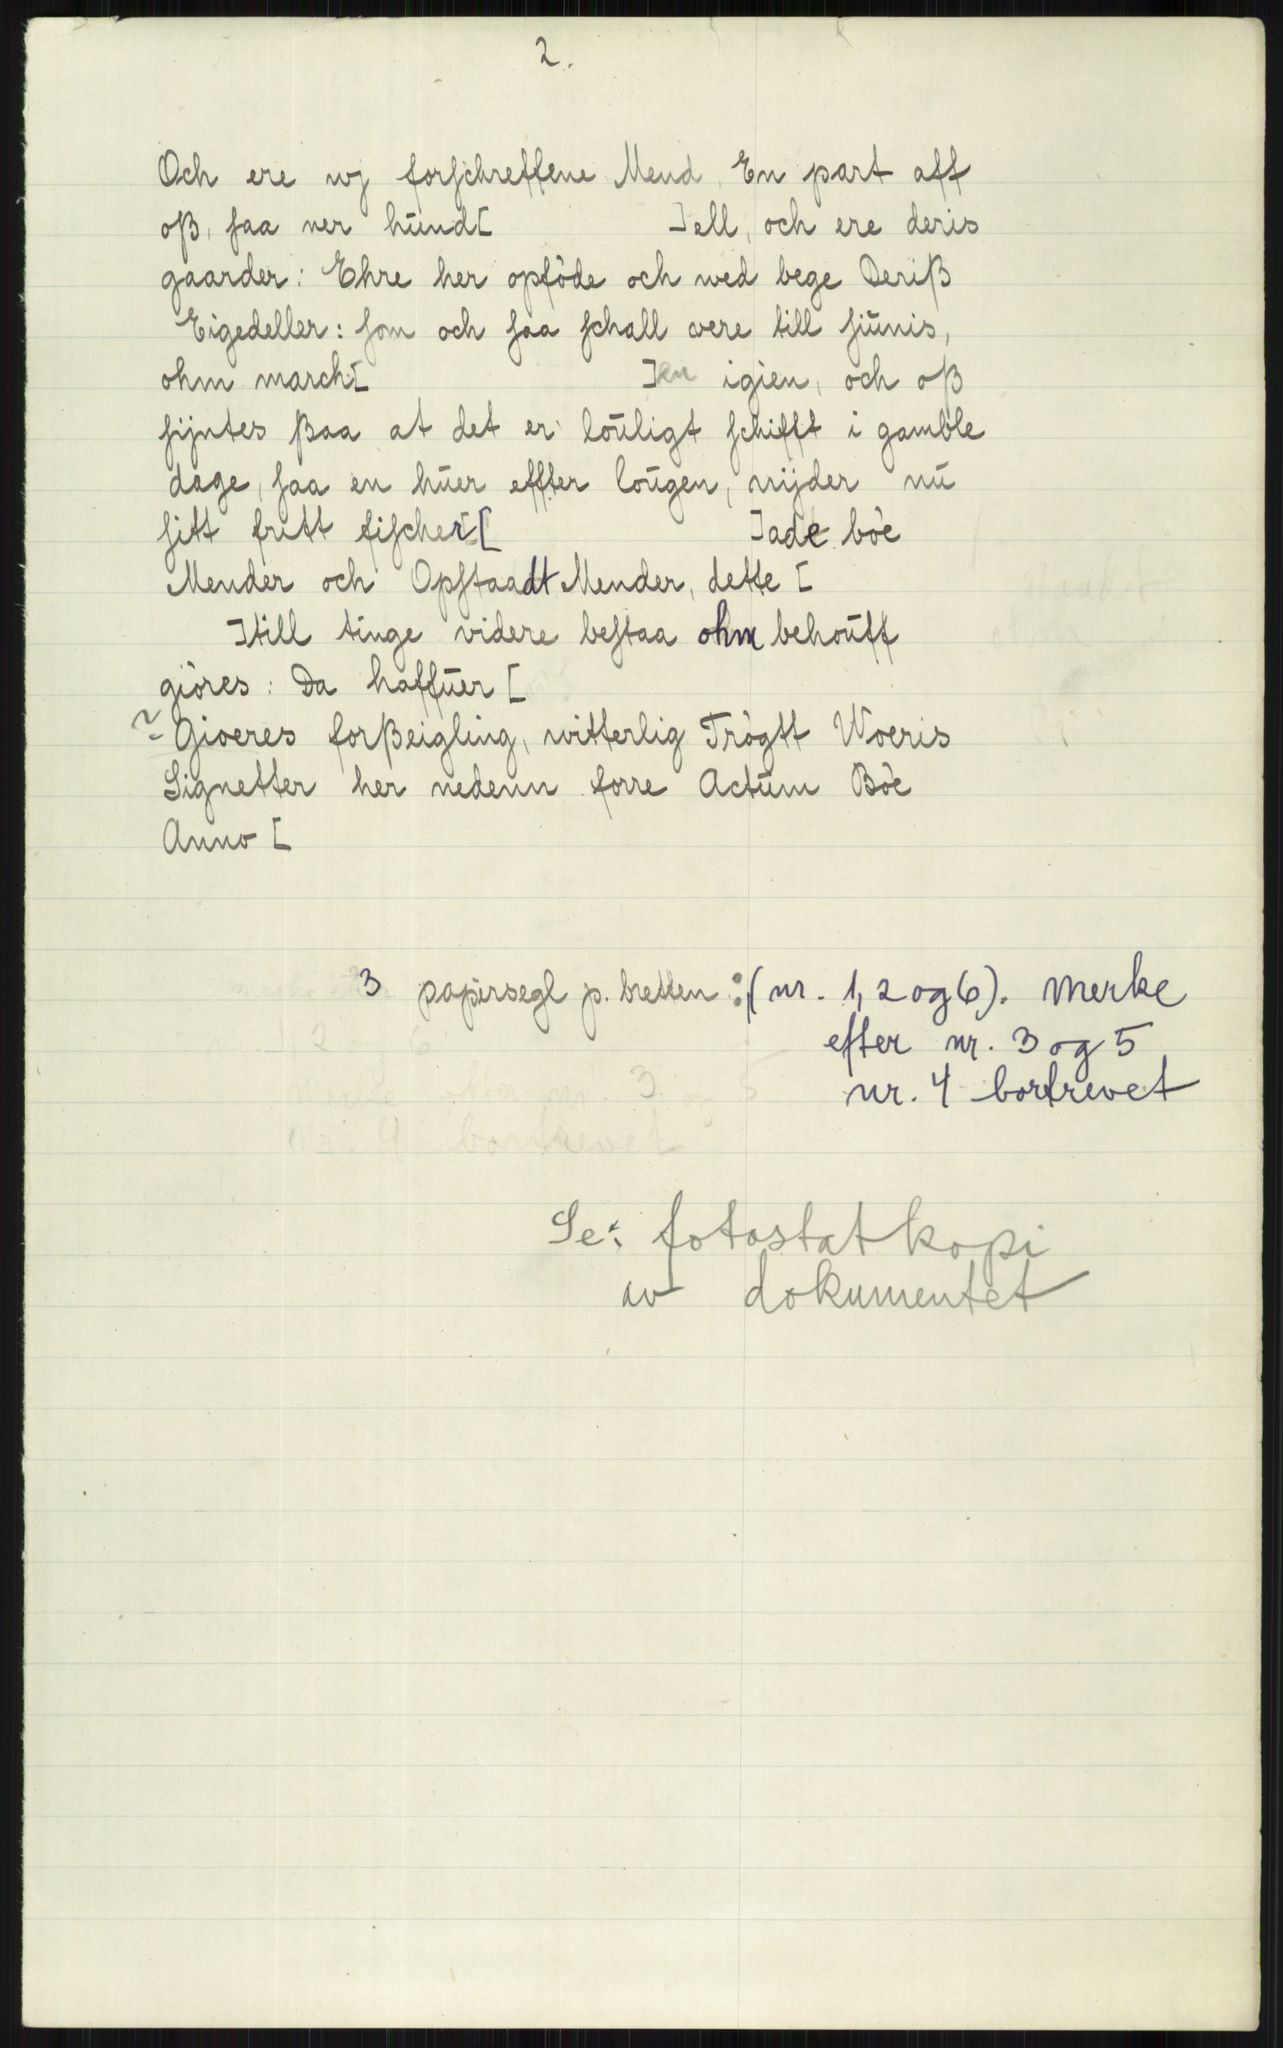 2.
Och ere wj forschreffene Mend, En part aff
oß, saa ner hūnd[ ]ell, och ere deris
gaarder: Ehre her opføde och wed bege Deriß
Eigedeller: som och saa schall were till siūnis,
ohm march[ ]en igien, och oß
sijntes ßaa at det er loūligt schifft i gamble
dage, saa en hūer effter loūgen, nijder nū
sitt fritt fischer[ ]ade bøe
Mender och Opstaadt Mender, dette [
]till tinge videre bestaa ohm behoūff
giøres: Da haffūer [
? Gioeres forßeigling, witterlig Trøgtt Woeris
Signetter her nedenn forre Actūm Bøe
Anno [
3 papirsegl p. bretten: (nr. 1, 2 og 6). Merke
efter nr. 3 og 5
nr. 4 bortrevet
Se: fotostatkopi
av dokumentet